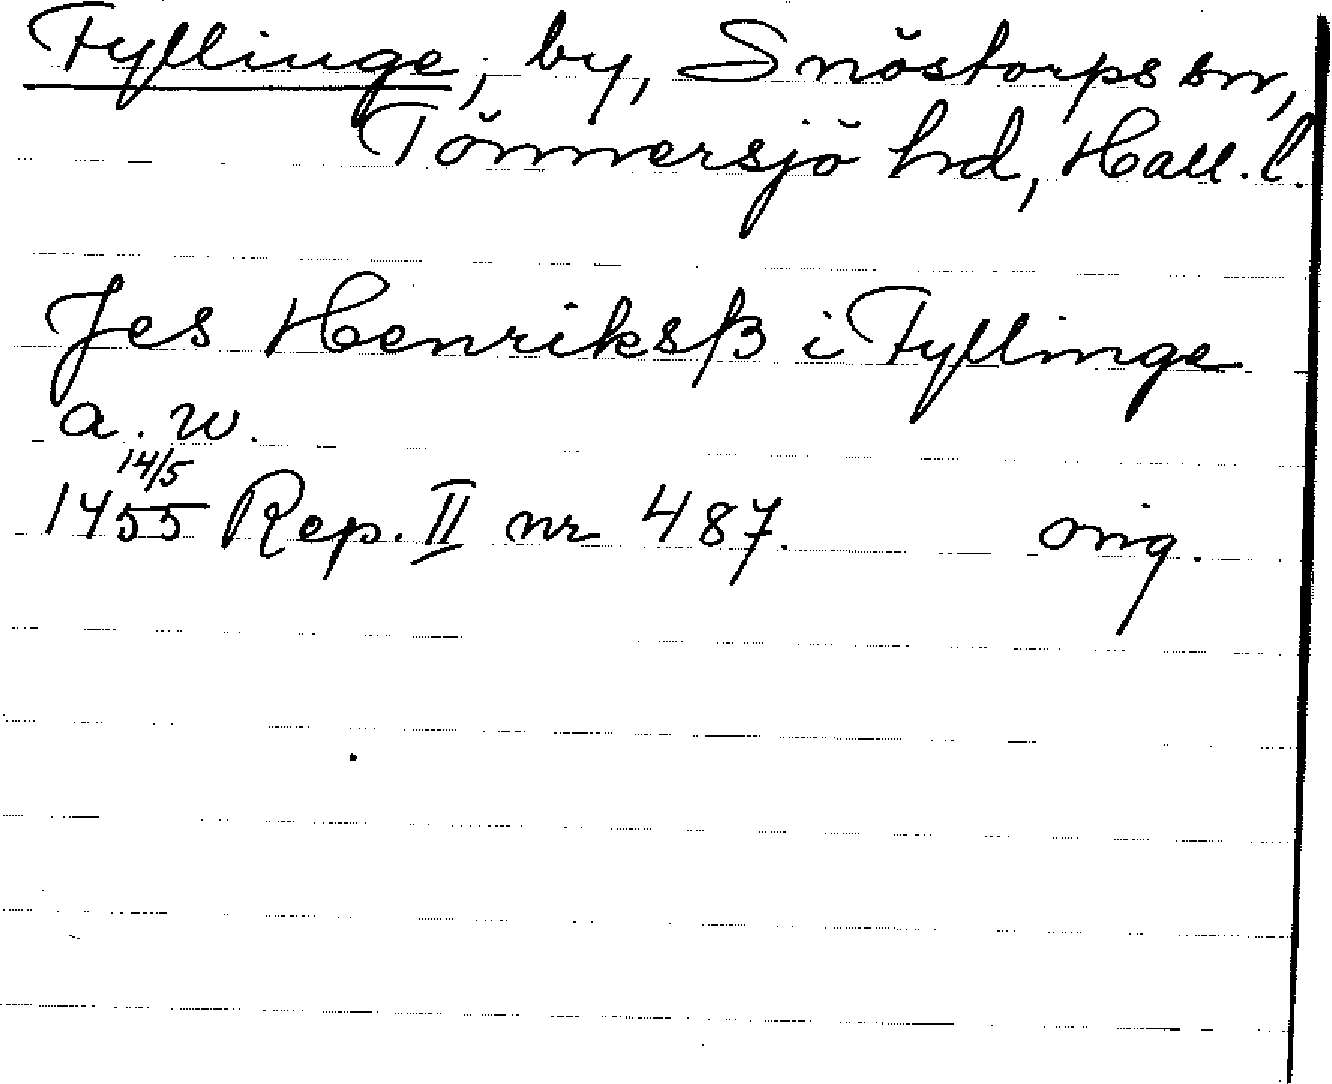 Fyllinge, by, Snöstorps sn,
Tönnersjö hd, Hall. l.
Jes Henriksß i Fyllinge
a. w.
14/5
1455 Rep. II nr 487. orig.